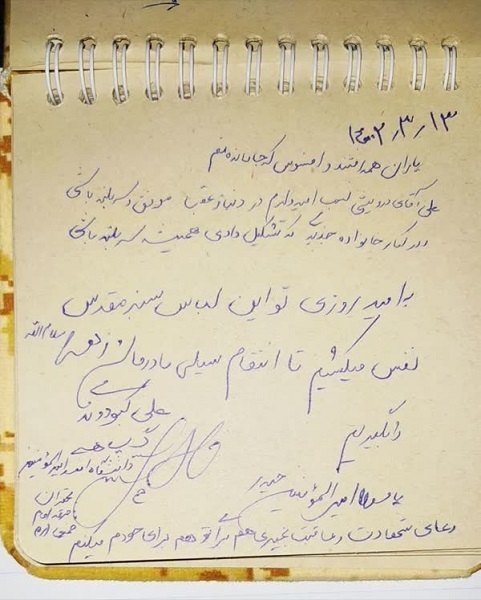 ۱۴۰۲٫۳٫۱۳
یاران همه رفتند و افسوس که جامانده منم
علی آقای درویشی نسب امیدوارم در دنیا و عقبا موفق و سربلند باشی
و در کنار خانواده جدیدی که تشکیل دادی همیشه سربلند باشی
به امید روزی تو این لباس سبز مقدس
نفس میکشیم تا انتقام سیلی مادرمان زهرا سلام الله
را بگیریم
علی کبودوند
دانشگاه افسری امیرالمومنین
تهران
یا مولا امیرالمومنین حیدر
دعای شهادت و عاقبت بخیری هم برا تو هم برای خودم میکنم